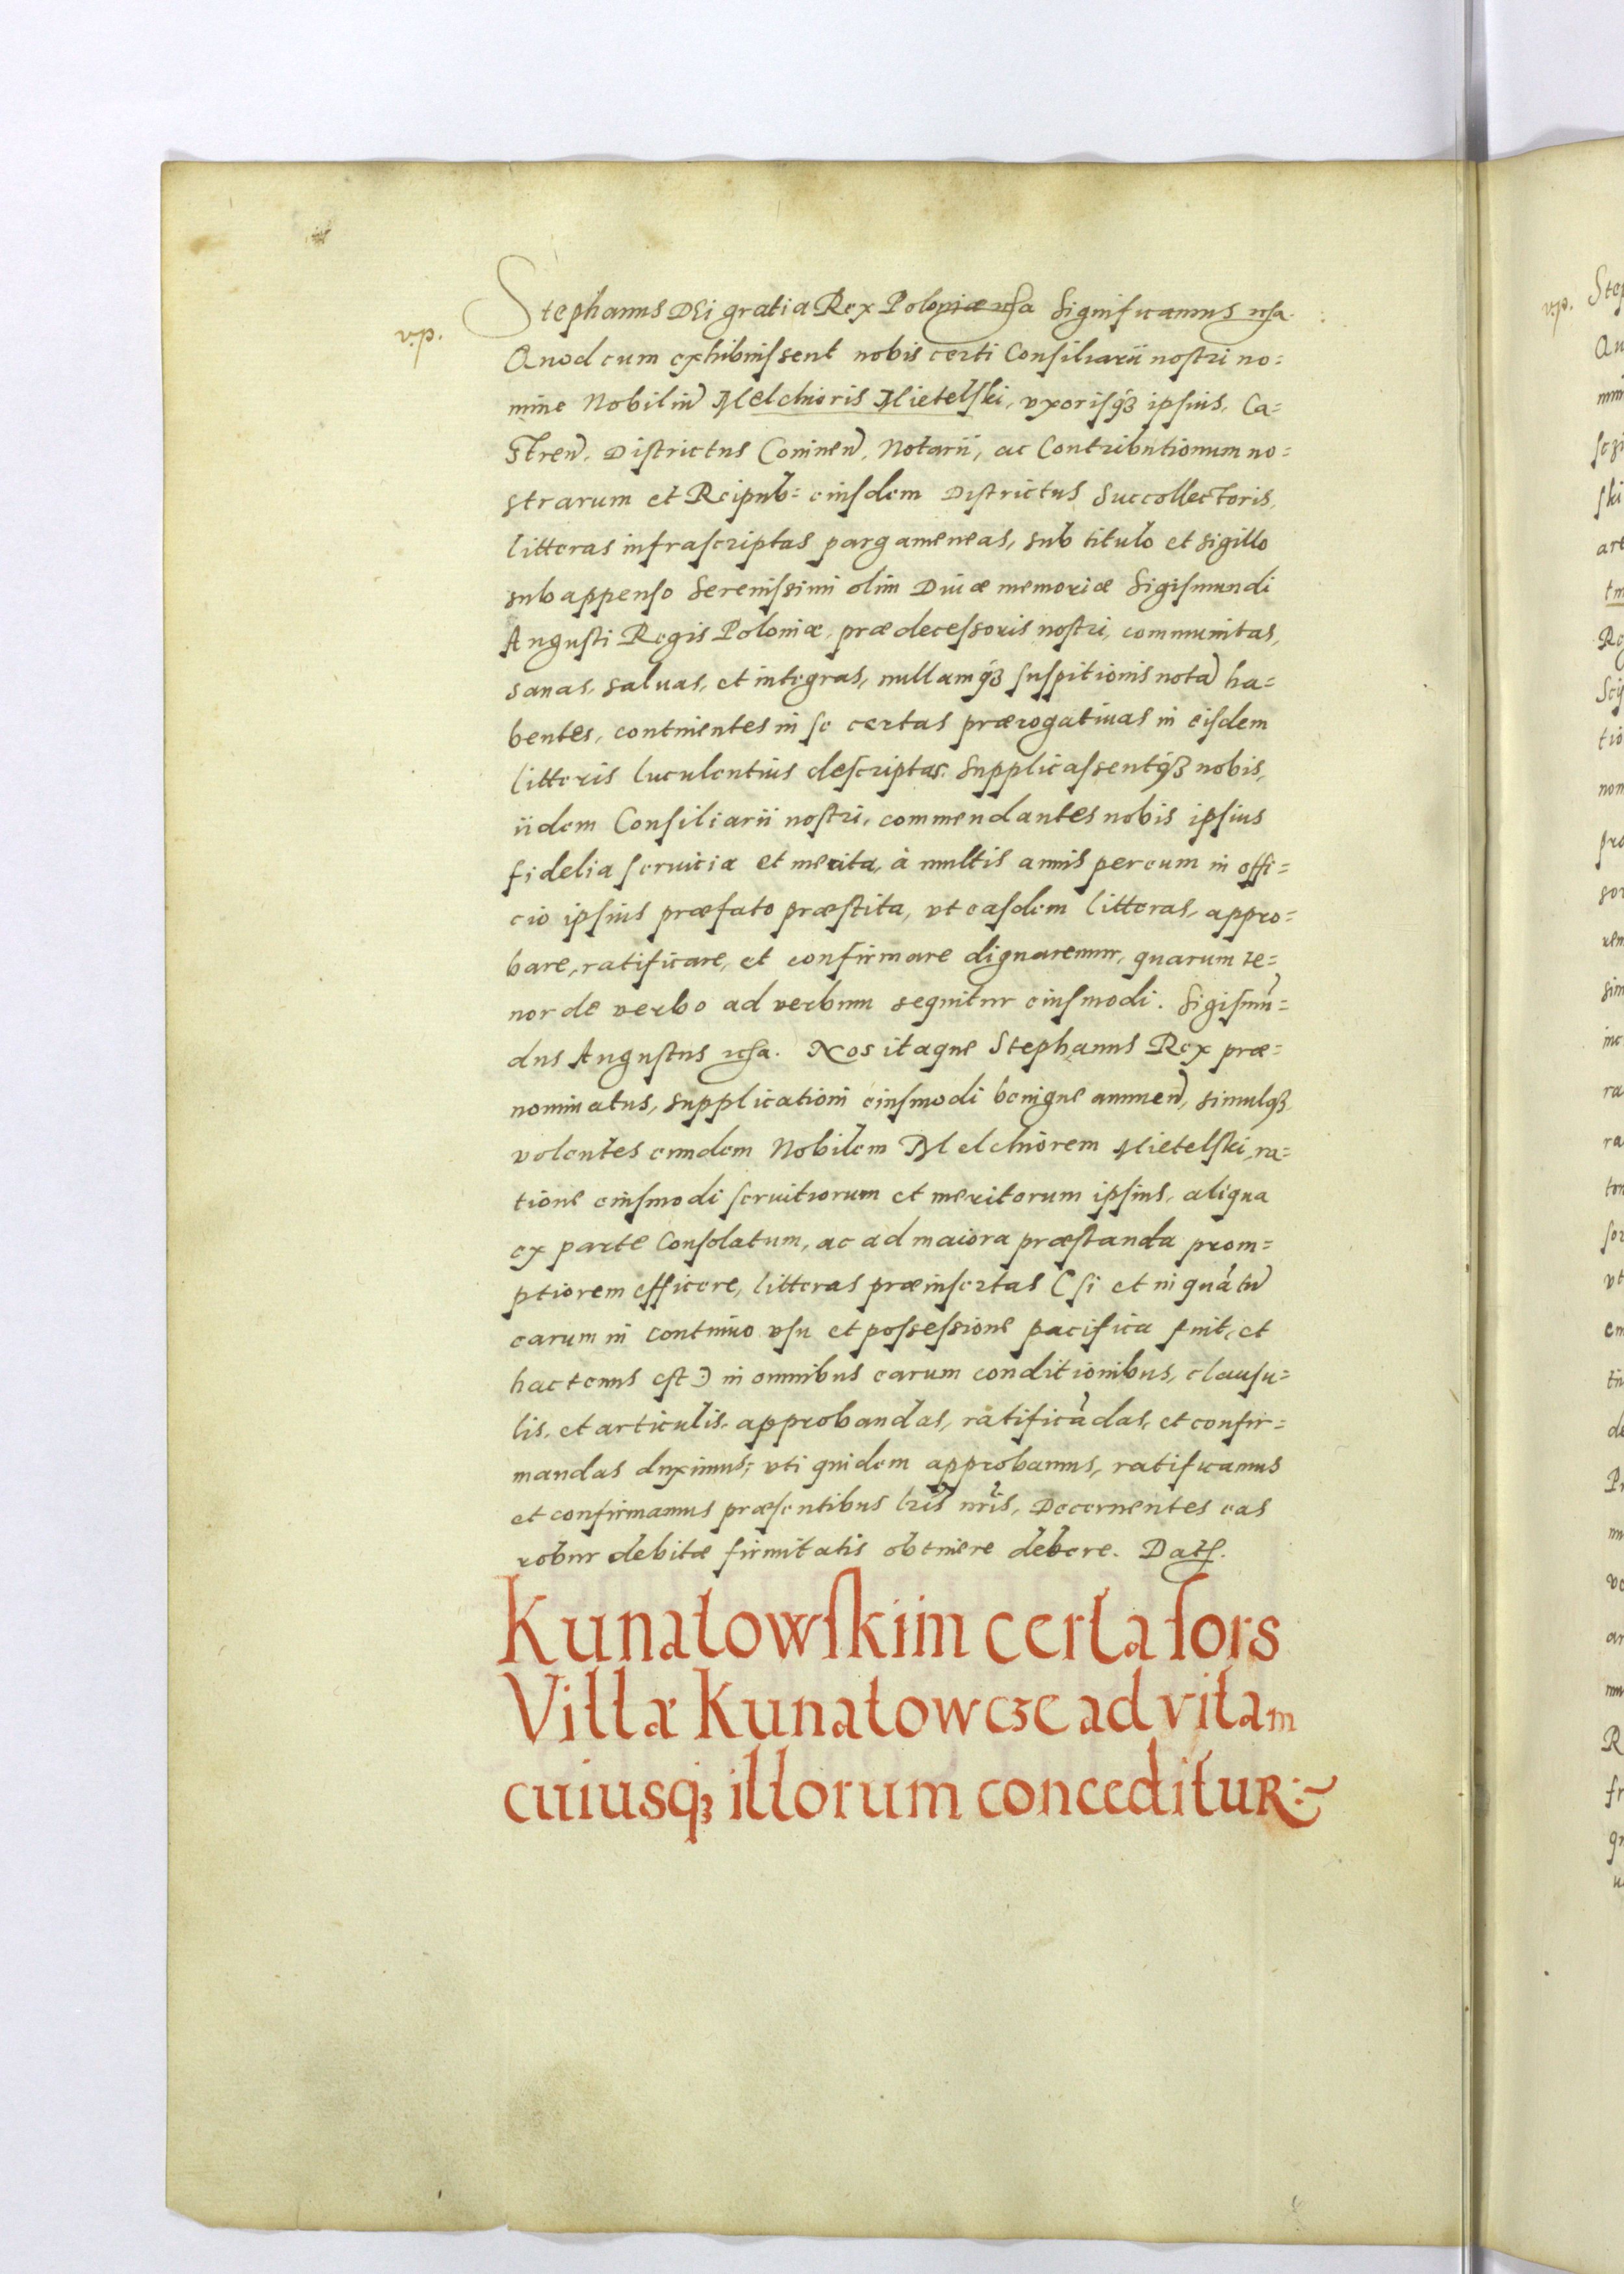 Stephanus DEi gratia Rex Poloniæ etc̃a Significamus etc̃a.
v.p.
Quod cum exhibuissent nobis certi Consiliarii nostri no=
mine Nobiliũ Melchioris Mietelski, vxorisq́ꝫ ipsius, Ca=
streñ. Districtus Conineñ. Notarii, ac Contributionum no=
strarum et Reipub= eiusdem Districtus Succollectoris,
litteras infrascriptas pargameneas, sub titulo et sigillo
subappenso Serenissimi olim Diuæ memoriæ Sigismundi
Augusti Regis Poloniæ, prædecessoris nostri, communitas,
sanas, saluas, et integras, nullamq́ꝫ suspitionis notã ha=
bentes, continentes in se certas prærogatiuas in eisdem
litteris luculentius descriptas: Supplicassentq́ꝫ nobis,
iidem Consiliarii nostri, commendantes nobis ipsius
fidelia seruicia et merita, à multis annis per eum in offi=
cio ipsius præfato præstita, vt easdem litteras, appro=
bare, ratificare, et confirmare dignaremur, quarum te=
nor de verbo ad verbum sequitur eiusmodi. Sigismũ=
dus Augustus etc̃a. Nos itaque Stephanus Rex præ=
nominatus, supplicationi eiusmodi benigne annueñ, simulqꝫ
volentes eundem Nobilem Melchiorem Mietelski, ra=
tione eiusmodi seruitiorum et meritorum ipsius, aliqua
ex parte Consolatum, ac ad maiora præstanda prom=
ptiorem efficere, litteras præinsertas (si et in quãtũ
earum in continuo vsu et possessione pacifica fuit, et
hactenus est) in omnibus earum conditionibus, clausu=
lis, et articulis, approbandas, ratificãdas, et confir=
mandas duximus; vti quidem approbamus, ratificamus
et confirmamus præsentibus lr̃is nr̃is, Decernentes eas
robur debitæ firmitatis obtinere debere. Datt.
Kunatowskim certa sors
Villæ Kunatowcze ad vitam
cuiusqꝫ illorum conceditur:~